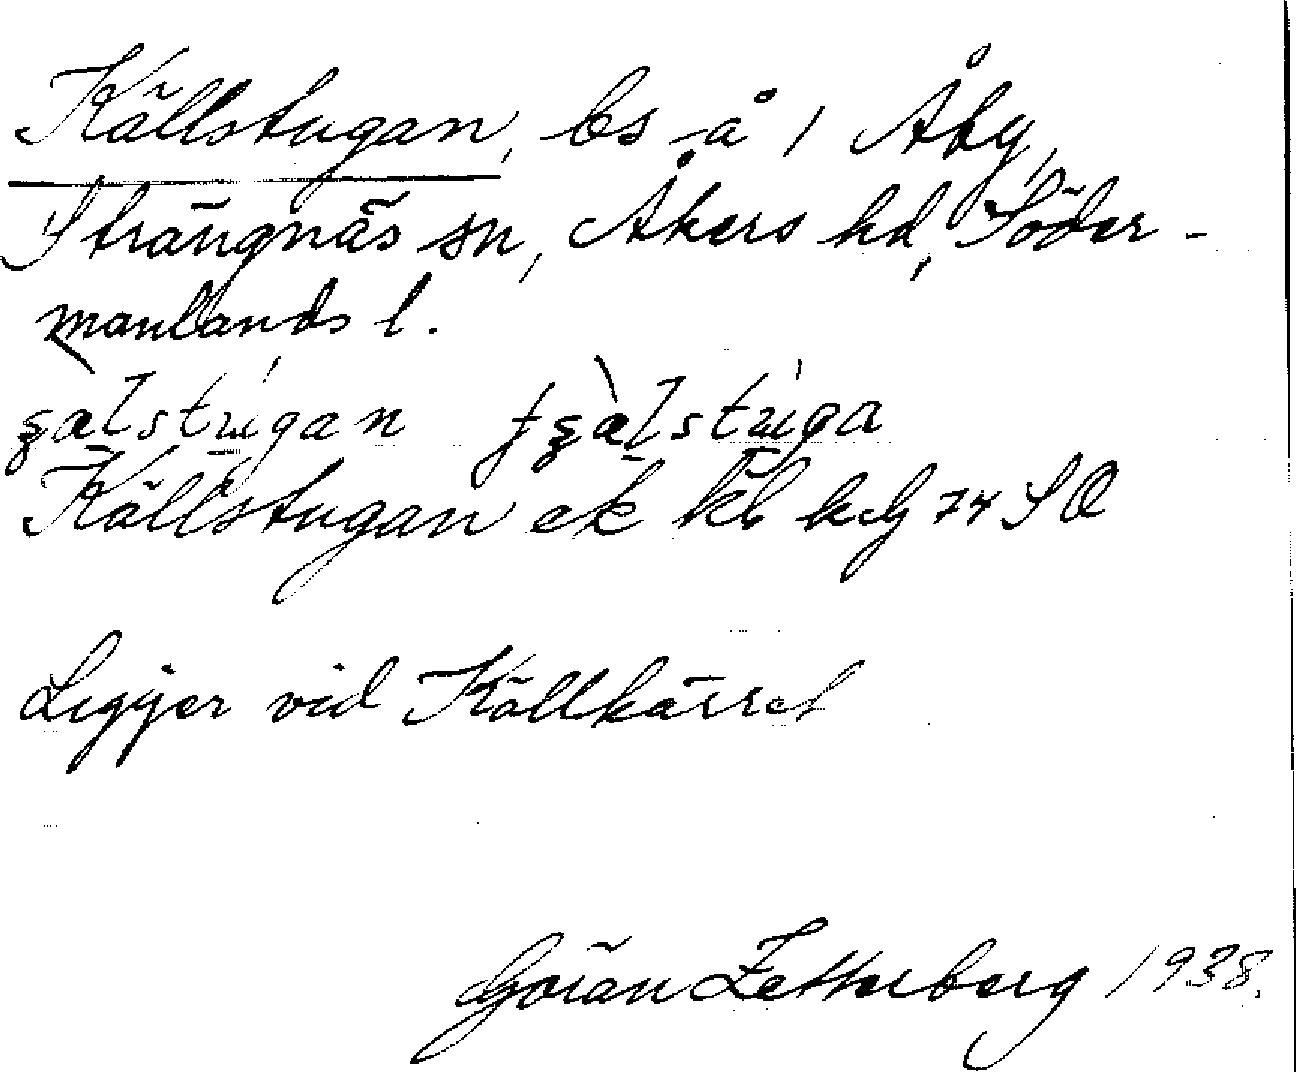 Källstugan, bs å 1 Åby,
Strängnäs sn, Åkers hd, Söder-
manlands l.
Källstugan ek kb h. G 74 SO
Ligger vid Källkärret
Göran Zetterberg 1938.